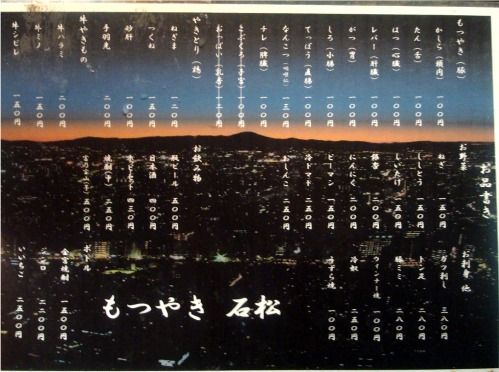 お品書き
もつやき(豚)
かしら(頬肉) 一〇〇円
たん(舌) 一〇〇円
はつ(心臓) 一〇〇円
レバー(肝臓) 一〇〇円
がつ(胃) 一〇〇円
しろ(小腸) 一〇〇円
てっぽう(直腸) 一〇〇円
なんこつ 一三〇円
チレ(脾臓) 一〇〇円
こぶくろ(子宮) 一〇〇円
おっぱい(乳房)
やきとり(鶏)
ねぎま 一二〇円
つくね 一五〇円
砂肝 一〇〇円
手羽先 二〇〇円
牛やきもの
牛ハラミ 二〇〇円
牛ミノ 一五〇円
牛シビレ 一五〇円
お野菜
ねぎ 一五〇円
ししとう 一五〇円
しいたけ 一五〇円
銀杏 二〇〇円
にんにく 二〇〇円
ピーマン 一五〇円
冷しトマト 二五〇円
おしんこ 二五〇円
お飲み物
瓶ビール 五〇〇円
日本酒 四〇〇円
四三〇円
焼酎(中) 二五〇円
ボトル
金宮焼酎 一五〇〇円
二二〇〇円
二五〇〇円
お刺身 他
ガツ刺し 三八〇円
トン足 二八〇円
豚ミミ 二八〇円
ウィンナー焼 一〇〇円
冷奴 二五〇円
うずら焼 一〇〇円
もつやき 石松